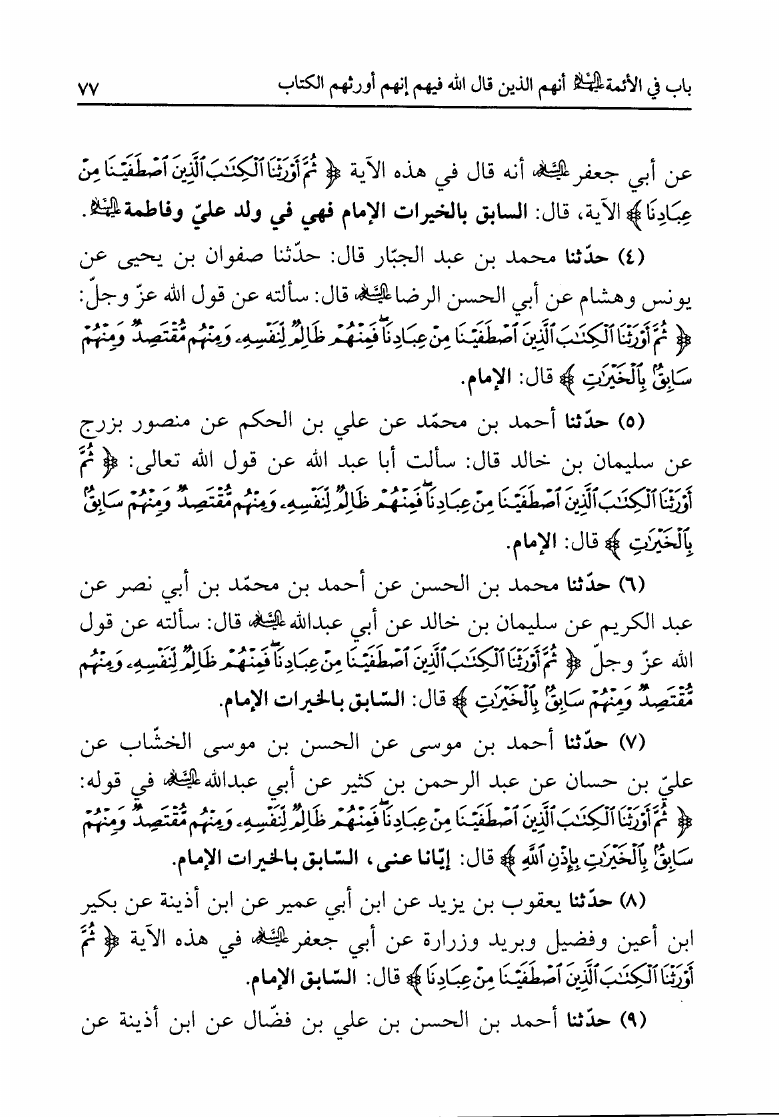 باب في الأئمة عليهم السلام أنهم الذين قال الله فيهم إنهم أورثهم الكتاب ٧٧
عن أبي جعفر عليه السلام أنه قال في هذه الآية ﴿ ثُمَّ أَوْرَثْنَا ٱلْكِتَٰبَ ٱلَّذِينَ ٱصْطَفَيْنَا مِنْ
عِبَادِنَا ﴾ الآية، قال: السابق بالخيرات الإمام فهي في ولد عليّ وفاطمة عليهما السلام.
(٤) حدّثنا محمد بن عبد الجبّار قال: حدّثنا صفوان بن يحيى عن
يونس وهشام عن أبي الحسن الرضا عليه السلام قال: سألته عن قول الله عزّ وجلّ:
﴿ ثُمَّ أَوْرَثْنَا ٱلْكِتَٰبَ ٱلَّذِينَ ٱصْطَفَيْنَا مِنْ عِبَادِنَا ۖ فَمِنْهُمْ ظَالِمٌ لِّنَفْسِهِۦ وَمِنْهُم مُّقْتَصِدٌ وَمِنْهُمْ
سَابِقٌۢ بِٱلْخَيْرَٰتِ ﴾ قال: الإمام.
(٥) حدّثنا أحمد بن محمّد عن علي بن الحكم عن منصور بزرج
عن سليمان بن خالد قال: سألت أبا عبد الله عن قول الله تعالى: ﴿ ثُمَّ
أَوْرَثْنَا ٱلْكِتَٰبَ ٱلَّذِينَ ٱصْطَفَيْنَا مِنْ عِبَادِنَا ۖ فَمِنْهُمْ ظَالِمٌ لِّنَفْسِهِۦ وَمِنْهُم مُّقْتَصِدٌ وَمِنْهُمْ سَابِقٌۢ
بِٱلْخَيْرَٰتِ ﴾ قال: الإمام.
(٦) حدّثنا محمد بن الحسن عن أحمد بن محمّد بن أبي نصر عن
عبد الكريم عن سليمان بن خالد عن أبي عبدالله عليه السلام قال: سألته عن قول
الله عزّ وجلّ ﴿ ثُمَّ أَوْرَثْنَا ٱلْكِتَٰبَ ٱلَّذِينَ ٱصْطَفَيْنَا مِنْ عِبَادِنَا ۖ فَمِنْهُمْ ظَالِمٌ لِّنَفْسِهِۦ وَمِنْهُم
مُّقْتَصِدٌ وَمِنْهُمْ سَابِقٌۢ بِٱلْخَيْرَٰتِ ﴾ قال: السّابق بالخيرات الإمام.
(٧) حدّثنا أحمد بن موسى عن الحسن بن موسى الخشّاب عن
عليّ بن حسان عن عبد الرحمن بن كثير عن أبي عبدالله عليه السلام في قوله:
﴿ ثُمَّ أَوْرَثْنَا ٱلْكِتَٰبَ ٱلَّذِينَ ٱصْطَفَيْنَا مِنْ عِبَادِنَا ۖ فَمِنْهُمْ ظَالِمٌ لِّنَفْسِهِۦ وَمِنْهُم مُّقْتَصِدٌ وَمِنْهُمْ
سَابِقٌۢ بِٱلْخَيْرَٰتِ بِإِذْنِ ٱللَّهِ ﴾ قال: إيّانا عنى، السّابق بالخيرات الإمام.
(٨) حدّثنا يعقوب بن يزيد عن ابن أبي عمير عن ابن أذينة عن بكير
ابن أعين وفضيل وبريد وزرارة عن أبي جعفر عليه السلام في هذه الآية ﴿ ثُمَّ
أَوْرَثْنَا ٱلْكِتَٰبَ ٱلَّذِينَ ٱصْطَفَيْنَا مِنْ عِبَادِنَا ﴾ قال: السّابق الإمام.
(٩) حدّثنا أحمد بن الحسن بن علي بن فضّال عن ابن أذينة عن